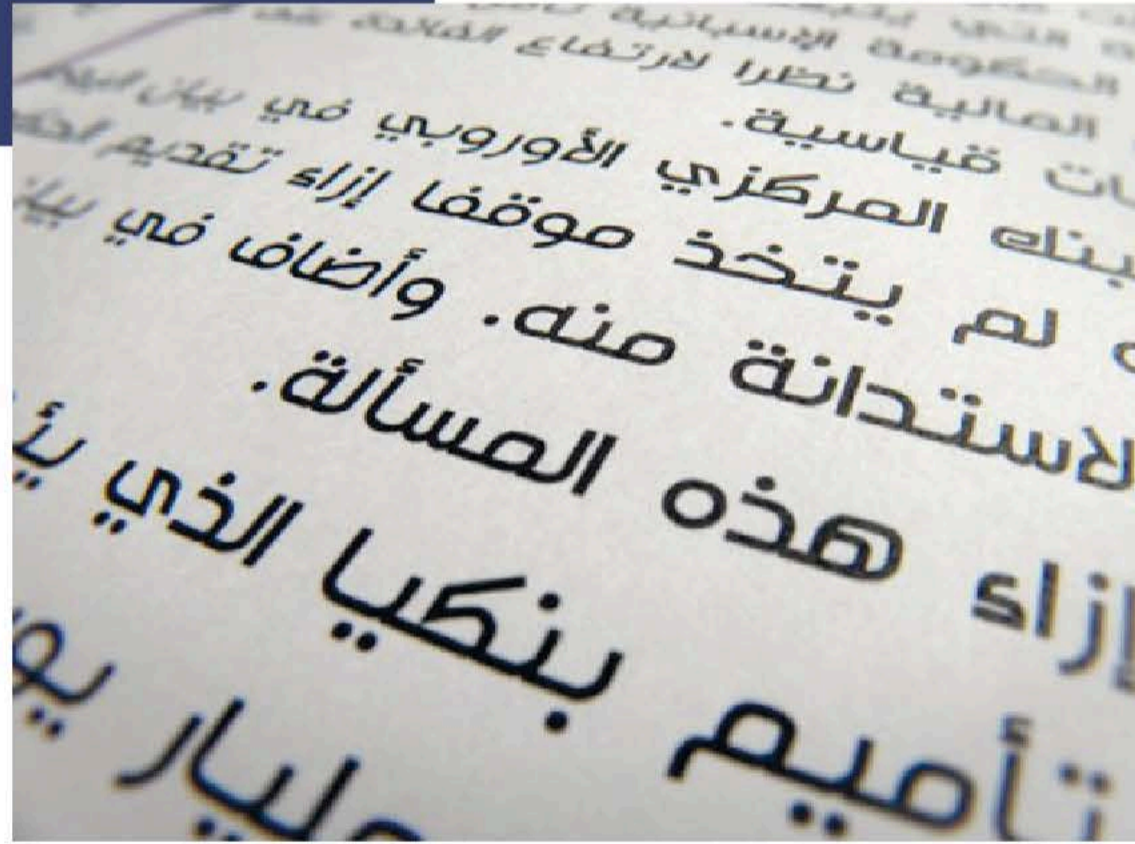 الحكومة الإسبانية
المالية نظرا لارتفاع الفائدة
ات قياسية.
بنك المركزي الأوروبي في بيان اليوم
لم يتخذ موقفا إزاء تقديم الحكو
لاستدانة منه. وأضاف في بيا
إزاء هذه المسألة.
تأميم بنكيا الذي يئ
مليار يو